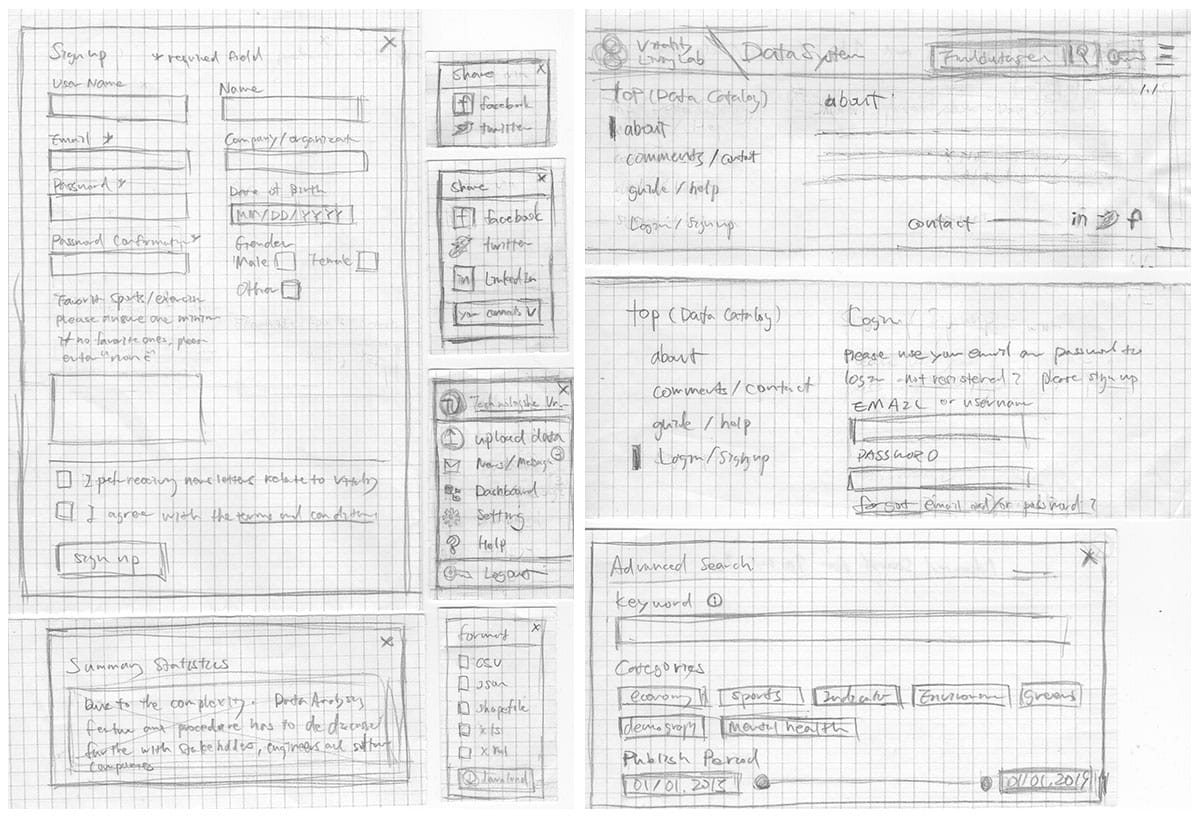 Sign up * required field
User Name
Name
Email *
Company/organization
Password *
Date of Birth
MM/DD/YYYY
Password Confirmation *
Gender
Male Female
Other
Favorite Sports/exercise
please ensure one minimum
if no favorite ones, please
enter "none"
newsletters relate to vitality
I agree with the terms and conditions
Sign up
Summary Statistics
Due to the complexity. Data Analysis
feature and procedure has to be
further with stakeholders, engineers and
companies
Share
facebook
twitter
Share
facebook
twitter
in LinkedIn
Technologishe
upload data
News/Message
Dashboard
Setting
Help
Logout
format
CSV
Json
shapefile
xls
xml
Download
Vitality
Living Lab
Data System
Find dataset
top (Data Catalog)
about
comments/contact
guide/help
Login/Signup
about
contact in f
top (Data Catalog)
about
comments/contact
guide/help
Login/Signup
Login
Please use your email and password to
login not registered? please sign up
EMAIL or username
PASSWORD
forgot email and/or password?
Advanced Search
keyword i
Categories
economy sports Indicator Environm Greens
demography Mental health
Publish Period
01/01.2013 01/01.2014